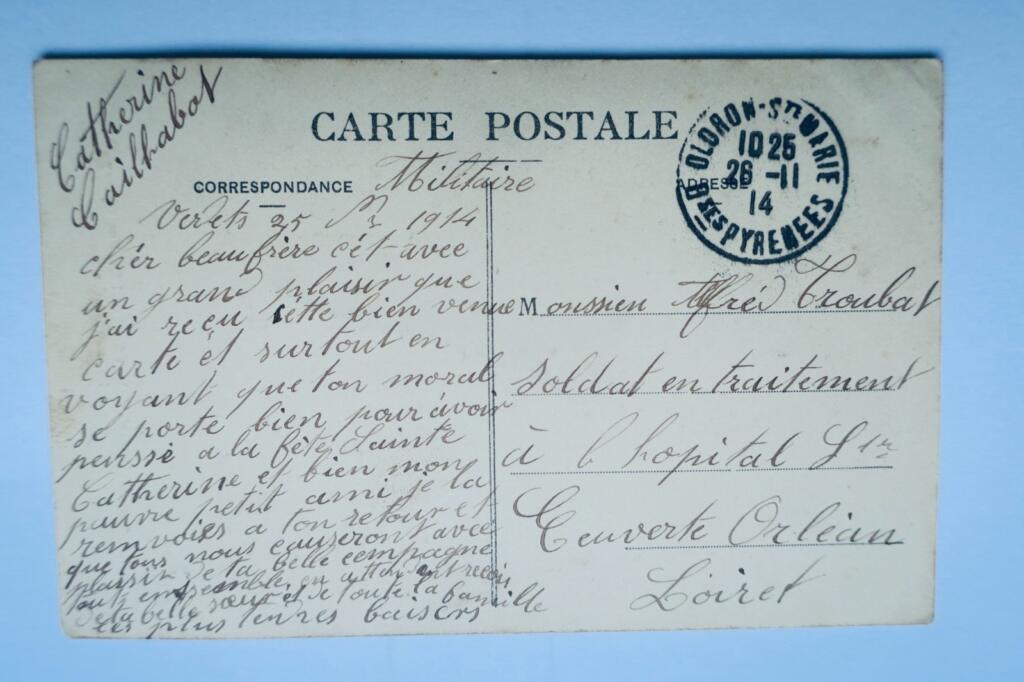 Catherine
Cailhabot
CARTE POSTALE
CORRESPONDANCE
Militaire
ADRESSE
OLORON-Ste MARIE
10 25
26 -11
14
Bses PYRENEES
Verets 25 1914
chér beaufrère cét avec
un grand plaisir que
j'ai reçu cette bien venue
carte ét surtout en
voyant que ton moral
se porte bien pour avoir
penssé a la fête Sainte
Catherine et bien mon
pauvre petit ami je la
remvoies a ton retour et
que tous nous causeront avec
plaissir de ta belle campagne
tout ensemble en attendant recois
de ta belle sœur et de toute la famille
les plus tendres baisers
Monssieu Alfréd Troubat
soldat en traitement
à l hopital Ste
Euverte Orléan
Loiret